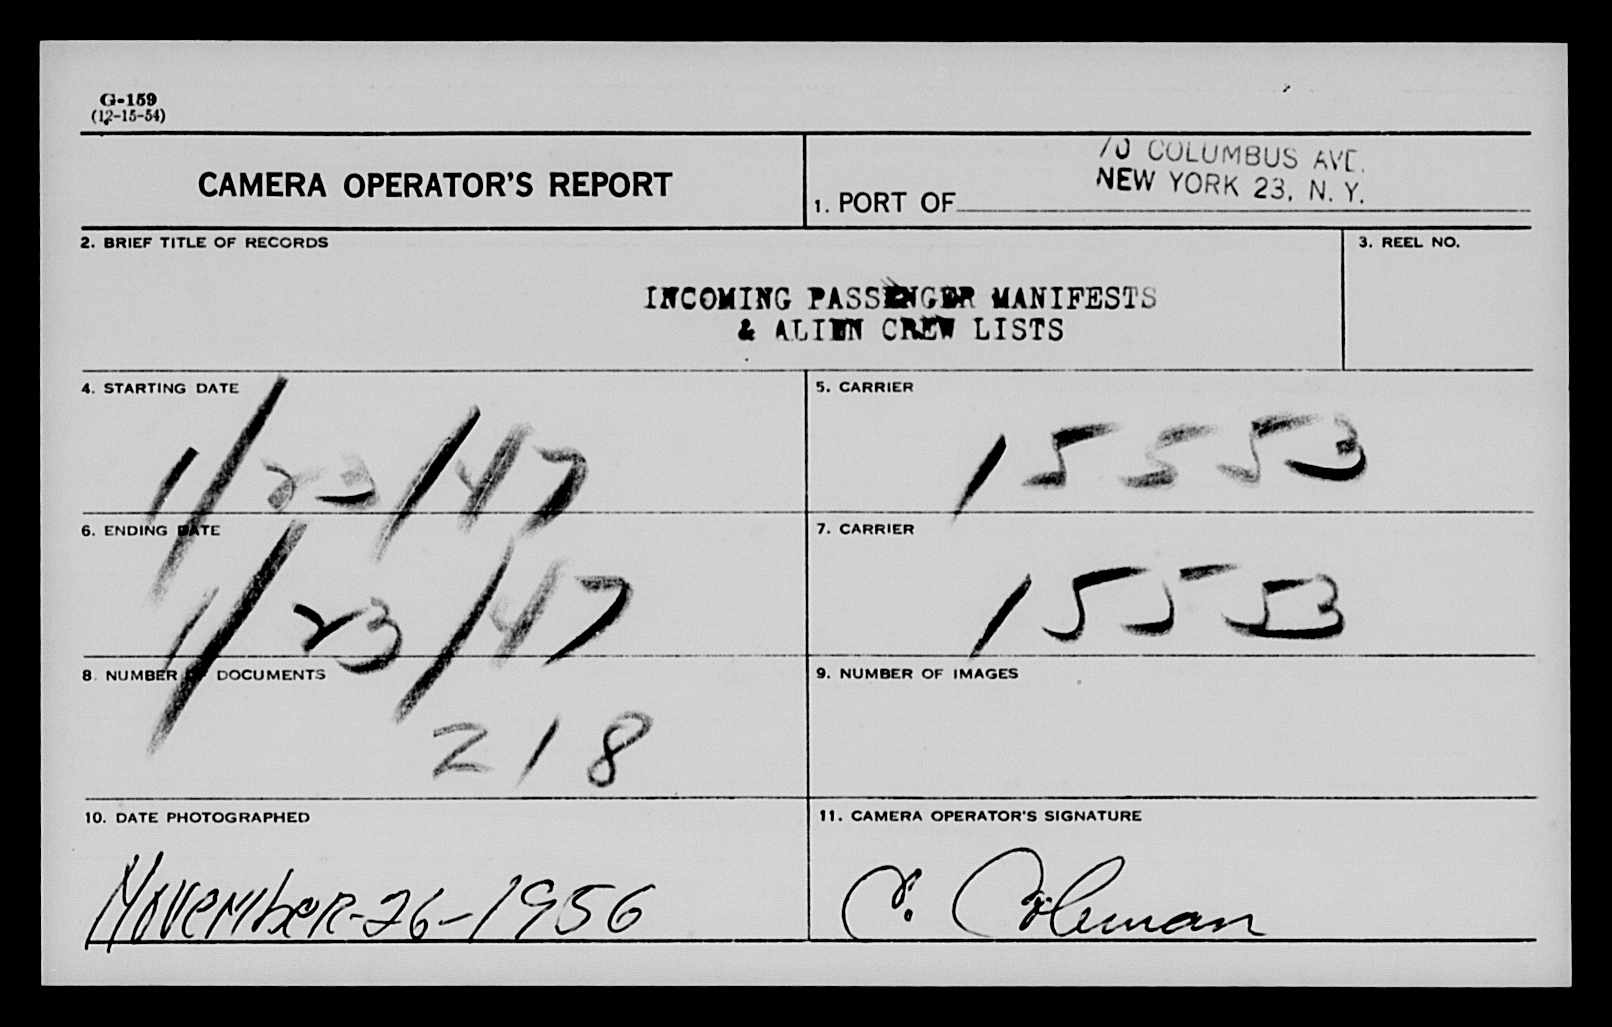 G-159
(12-15-54)
CAMERA OPERATOR'S REPORT
70 COLUMBUS AVE.
NEW YORK 23, N. Y.
1. PORT OF
2. BRIEF TITLE OF RECORDS
3. REEL NO.
INCOMING PASSENGER MANIFESTS
& ALIEN CREW LISTS
4. STARTING DATE
1/23/47
5. CARRIER
15553
6. ENDING DATE
1/23/47
7. CARRIER
15553
8. NUMBER OF DOCUMENTS
218
9. NUMBER OF IMAGES
10. DATE PHOTOGRAPHED
November-26-1956
11. CAMERA OPERATOR'S SIGNATURE
C. Coleman